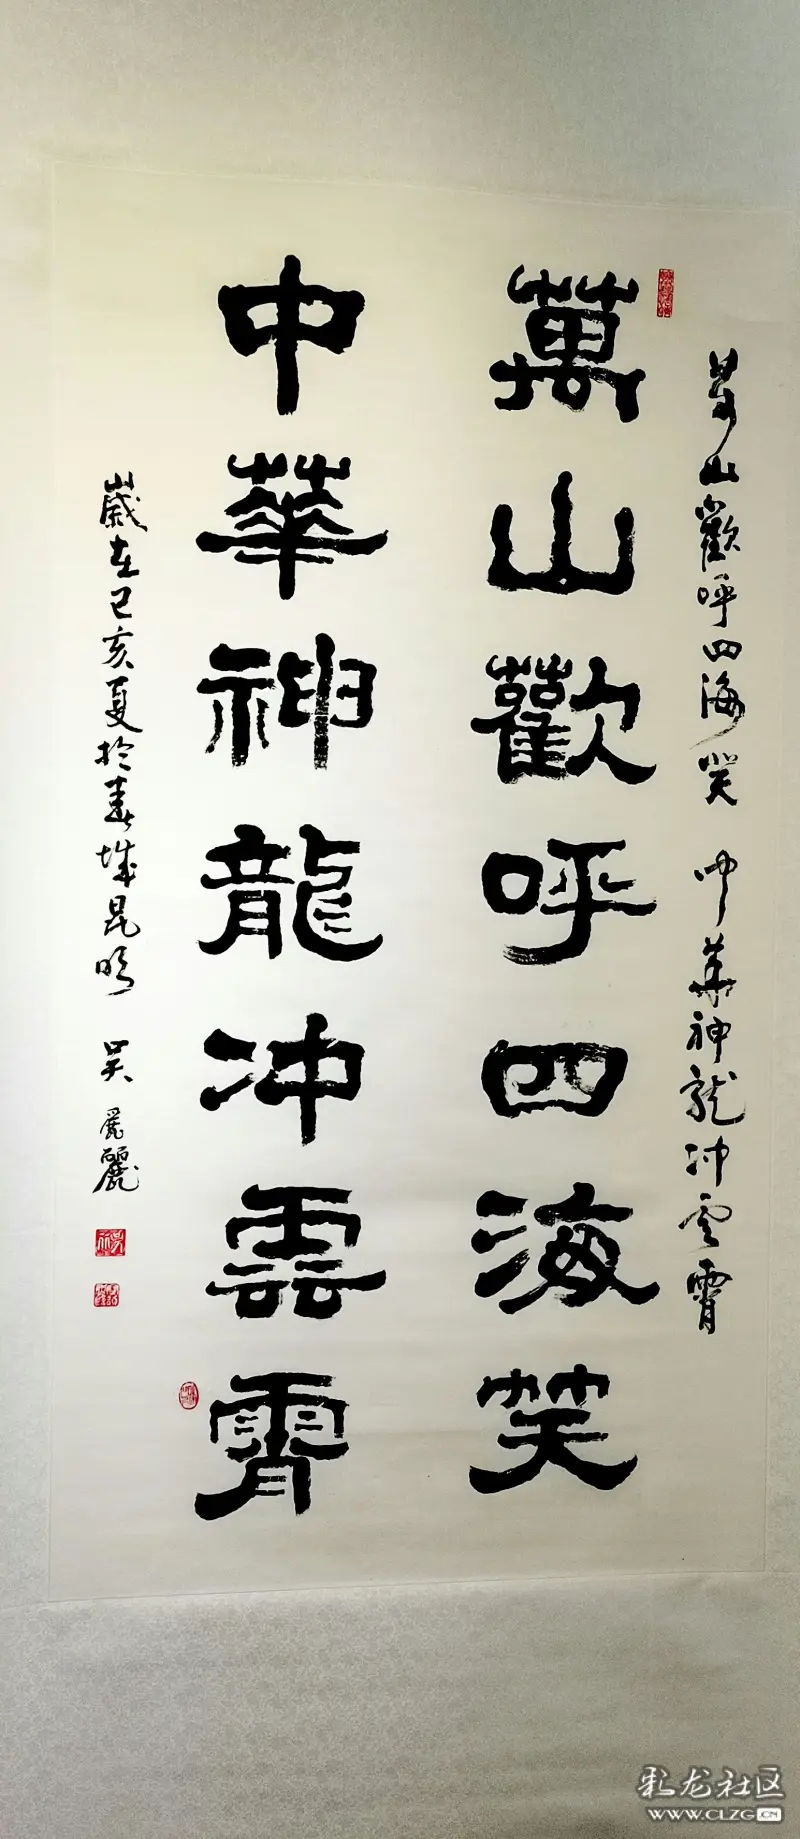 萬山歡呼四海笑 中華神龍冲雲霄
萬山歡呼四海笑
中華神龍冲雲霄
歲在己亥夏於春城昆明 吴麗
彩龙社区
WWW.CLZG.CN